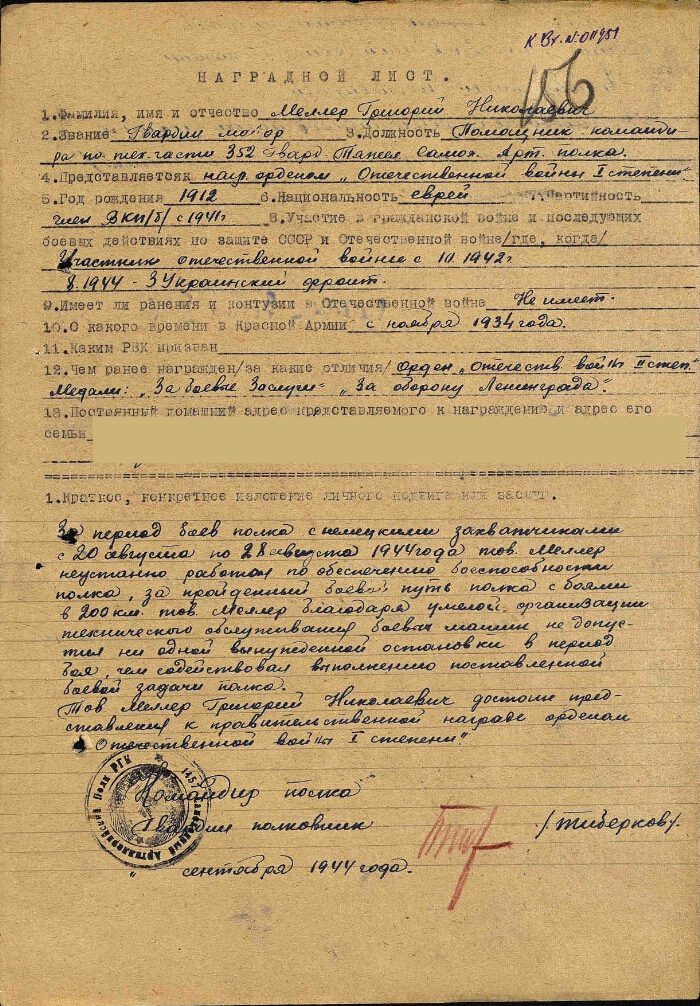 К Вх. № 011951
156
НАГРАДНОЙ ЛИСТ.
1.Фамилия, имя и отчество Меллер Григорий Николаевич
2.Звание Гвардии майор 3.Должность Помощник команди-
ра по тех.части 352 Гвард. Тяжел. Самох. Арт. полка.
4.Представляется к награ орденом „Отечественной войны I степени"
5.Год рождения 1912 6.Национальность еврей 7.Партийность
член ВКП/б/ с 1941г 8.Участие в гражданской войне и последующих
боевых действиях по защите СССР и Отечественной войне/где, когда/
Участник отечественной войны с 10.1942г.
8.1944 - 3 Украинский фронт.
9.Имеет ли ранения и контузии в Отечественной войне Не имеет.
10.С какого времени в Красной Армии с ноября 1934 года.
11.Каким РВК призван
12.Чем ранее награжден/за какие отличия/ Орден „Отечеств войны II степ."
Медали: „За боевые Заслуги" „За оборону Ленинграда".
13.Постоянный домашний адрес представляемого к награждению и адрес его
семьи
1.Краткое, конкретное изложение личного подвига или заслуг.
За период боев полка с немецкими захватчиками
с 20 августа по 28 августа 1944 года тов. Меллер
неустанно работал по обеспечению боеспособности
полка, за пройденный боевой путь полка с боями
в 200 км. тов. Меллер благодаря умелой организации
технического обслуживания боевых машин не допус-
тил ни одной вынужденной остановки в период
боя, чем содействовал выполнению поставленной
боевой задачи полка.
Тов Меллер Григорий Николаевич достоин пред-
ставления к правительственной награде орденом
„Отечественной войны I степени".
Командир полка
Гвардии полковник /Тиберков/.
„ сентября 1944 года.
1457 Самоходный Артиллерийский Полк РГК